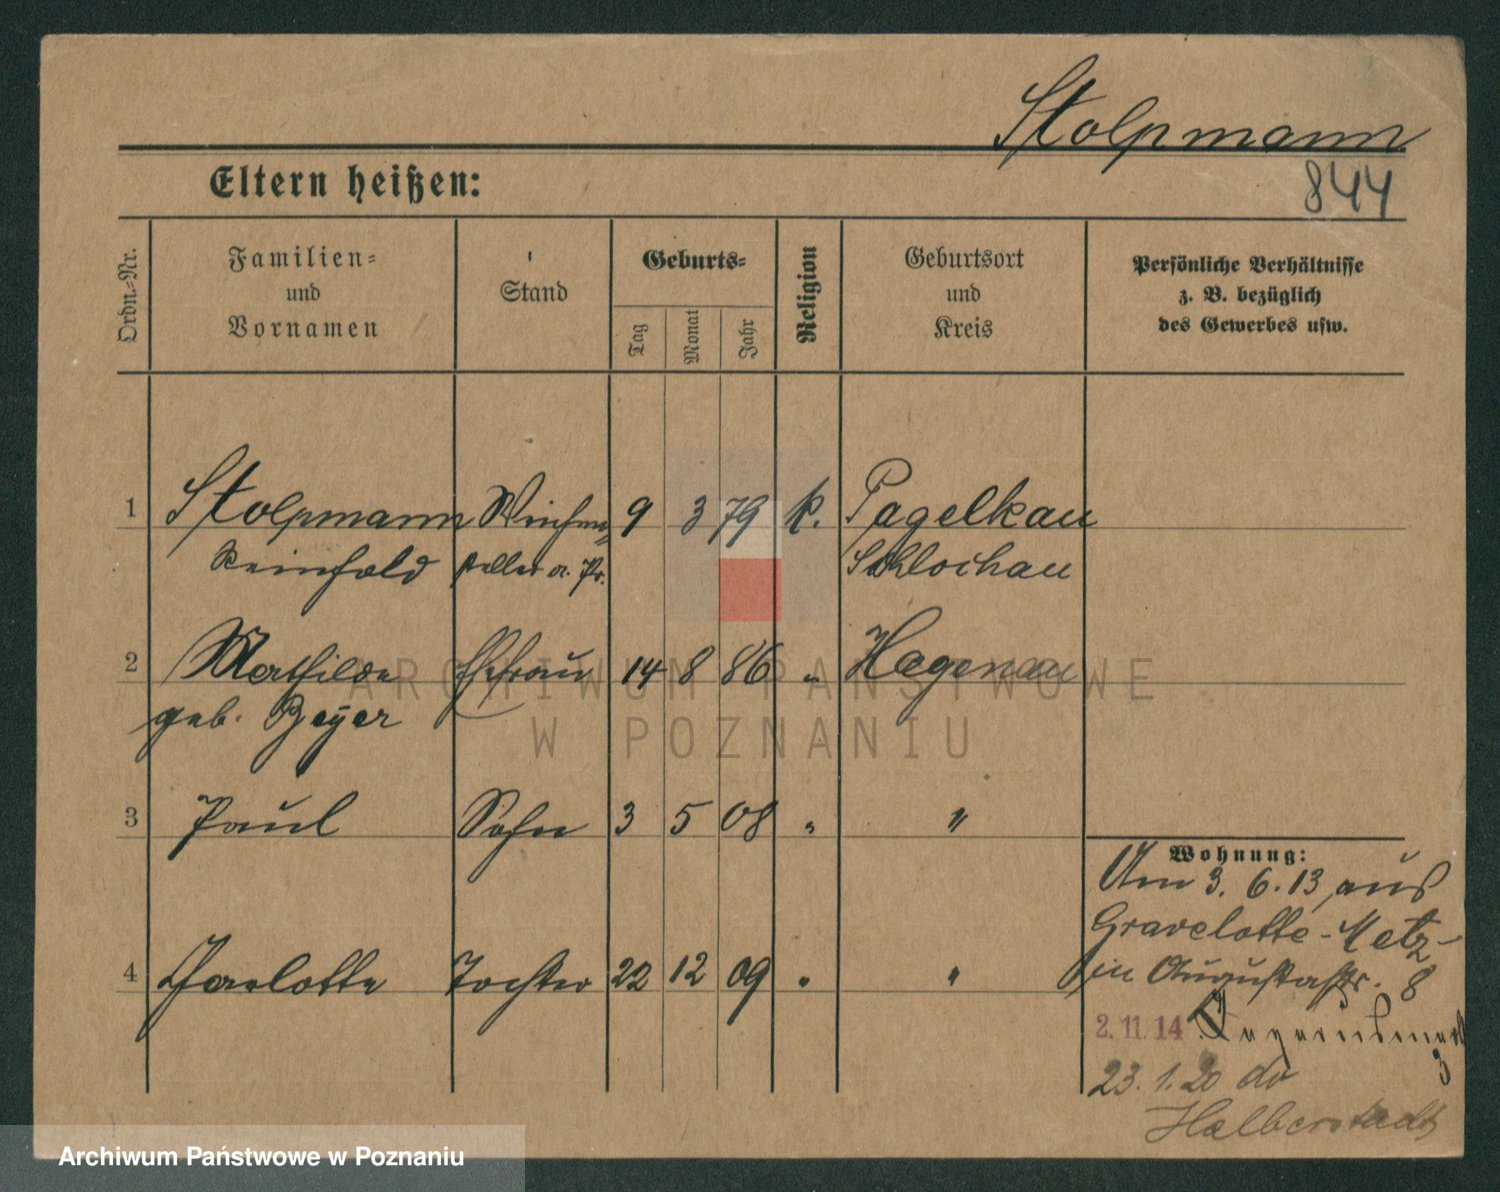 Stolpmann
844
Eltern heißen:
Ordn.-Nr.
Familien-
und
Vornamen
Stand
Geburts-
Tag
Monat
Jahr
Religion
Geburtsort
und
Kreis
Persönliche Verhältnisse
z. B. bezüglich
des Gewerbes usw.
1 Stolpmann 9 3 79 k. Pagelkau
Reinhold Schlochau
2 Mathilde Ehefrau 14 8 86 " Hagenau
geb. Beyer
3 Paul Sohn 3 5 08 " "
4 Charlotte Tochter 22 12 09 " "
Wohnung:
Am 3. 6. 13, aus
Gravelotte-Metz
in Augustastr. 8
2. 11. 14
3
23. 1. 20
Halberstadt
ARCHIWUM PAŃSTWOWE
W POZNANIU
Archiwum Państwowe w Poznaniu